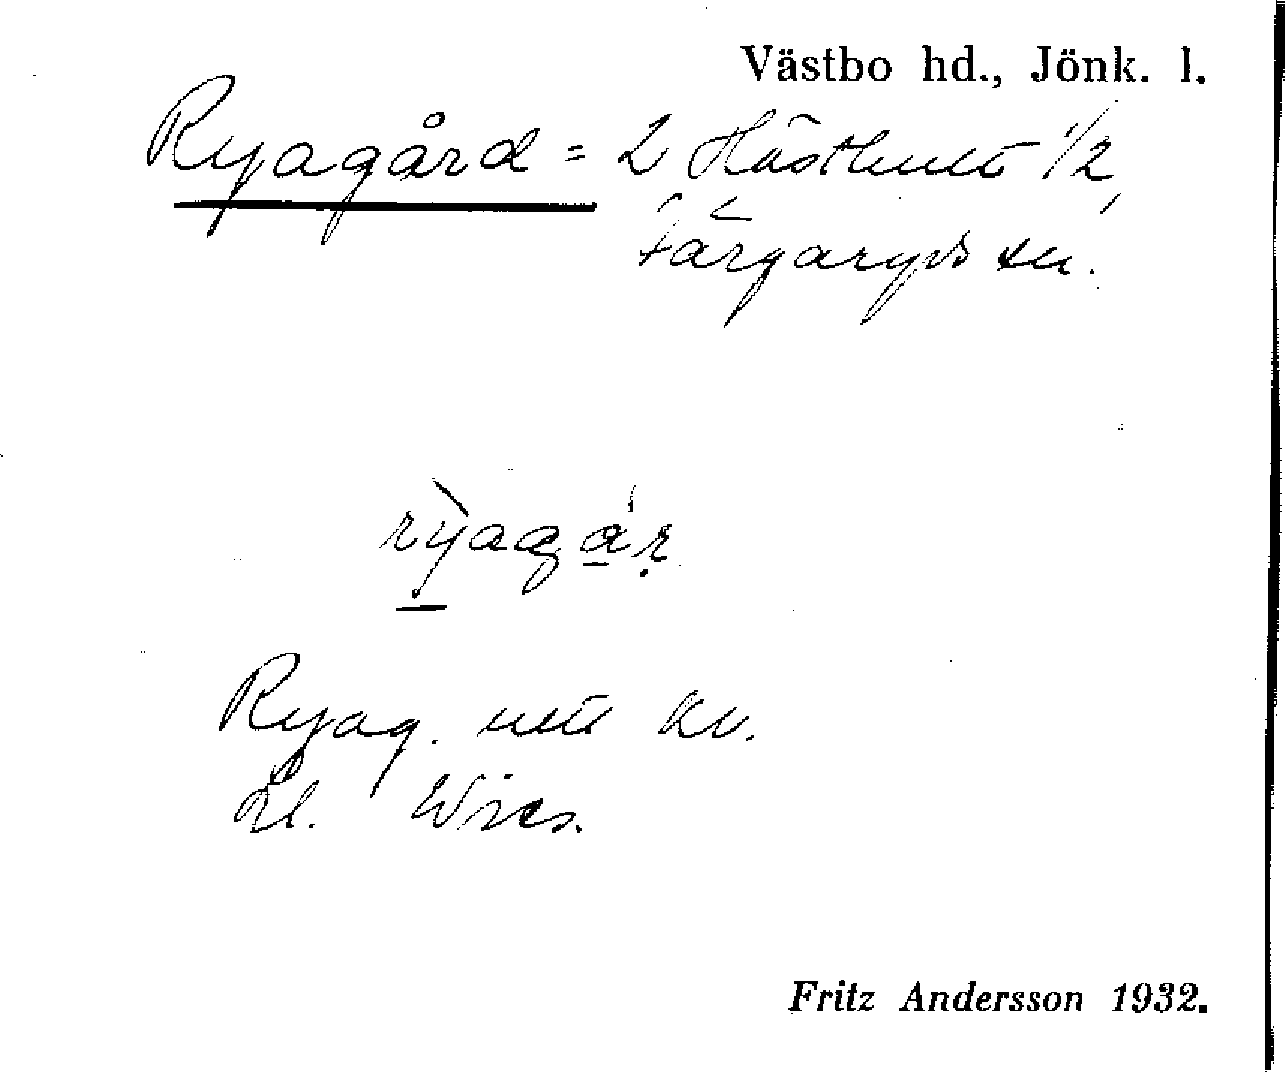 Västbo hd., Jönk. l.
Ryagård = 2 Hästhult 1/2,
Färgaryds sn.
rỳagár
Ryag. utt kv.
Kl.
Fritz Andersson 1932.